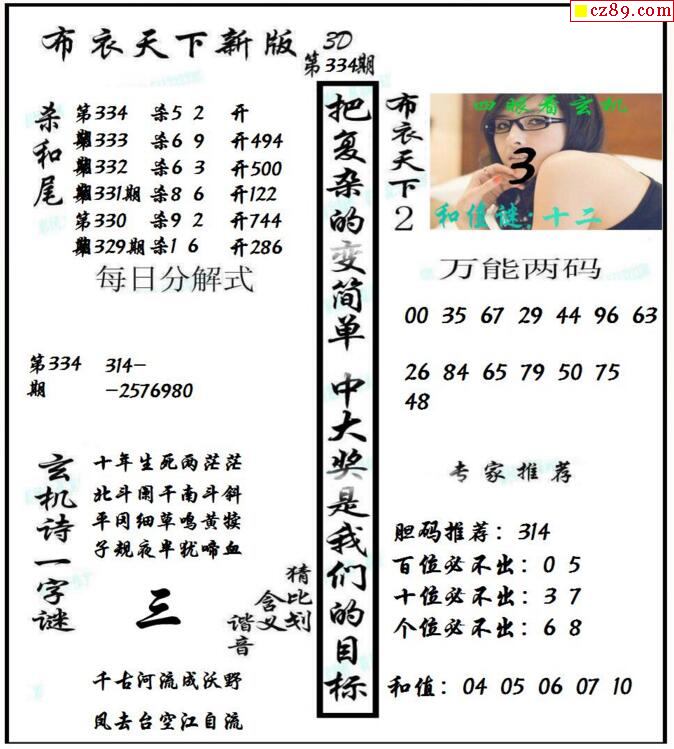 cz89.com
布衣天下新版
3D
第334期
杀和尾
第334期 杀5 2 开
第333 杀6 9 开494
第332 杀6 3 开500
第331期 杀8 6 开122
第330 杀9 2 开744
第329期 杀1 6 开286
每日分解式
第334期
314-
-2576980
玄机诗一字谜
十年生死两茫茫
北斗阑干南斗斜
平冈细草鸣黄犊
子规夜半犹啼血
三
猜比划
含义
谐音
千古河流成沃野
凤去台空江自流
把复杂的变简单 中大奖是我们的目标
布衣天下2
四眼看玄机
3
和值谜:十二
万能两码
00 35 67 29 44 96 63
26 84 65 79 50 75
48
专家推荐
胆码推荐：314
百位必不出：0 5
十位必不出：3 7
个位必不出：6 8
和值：04 05 06 07 10